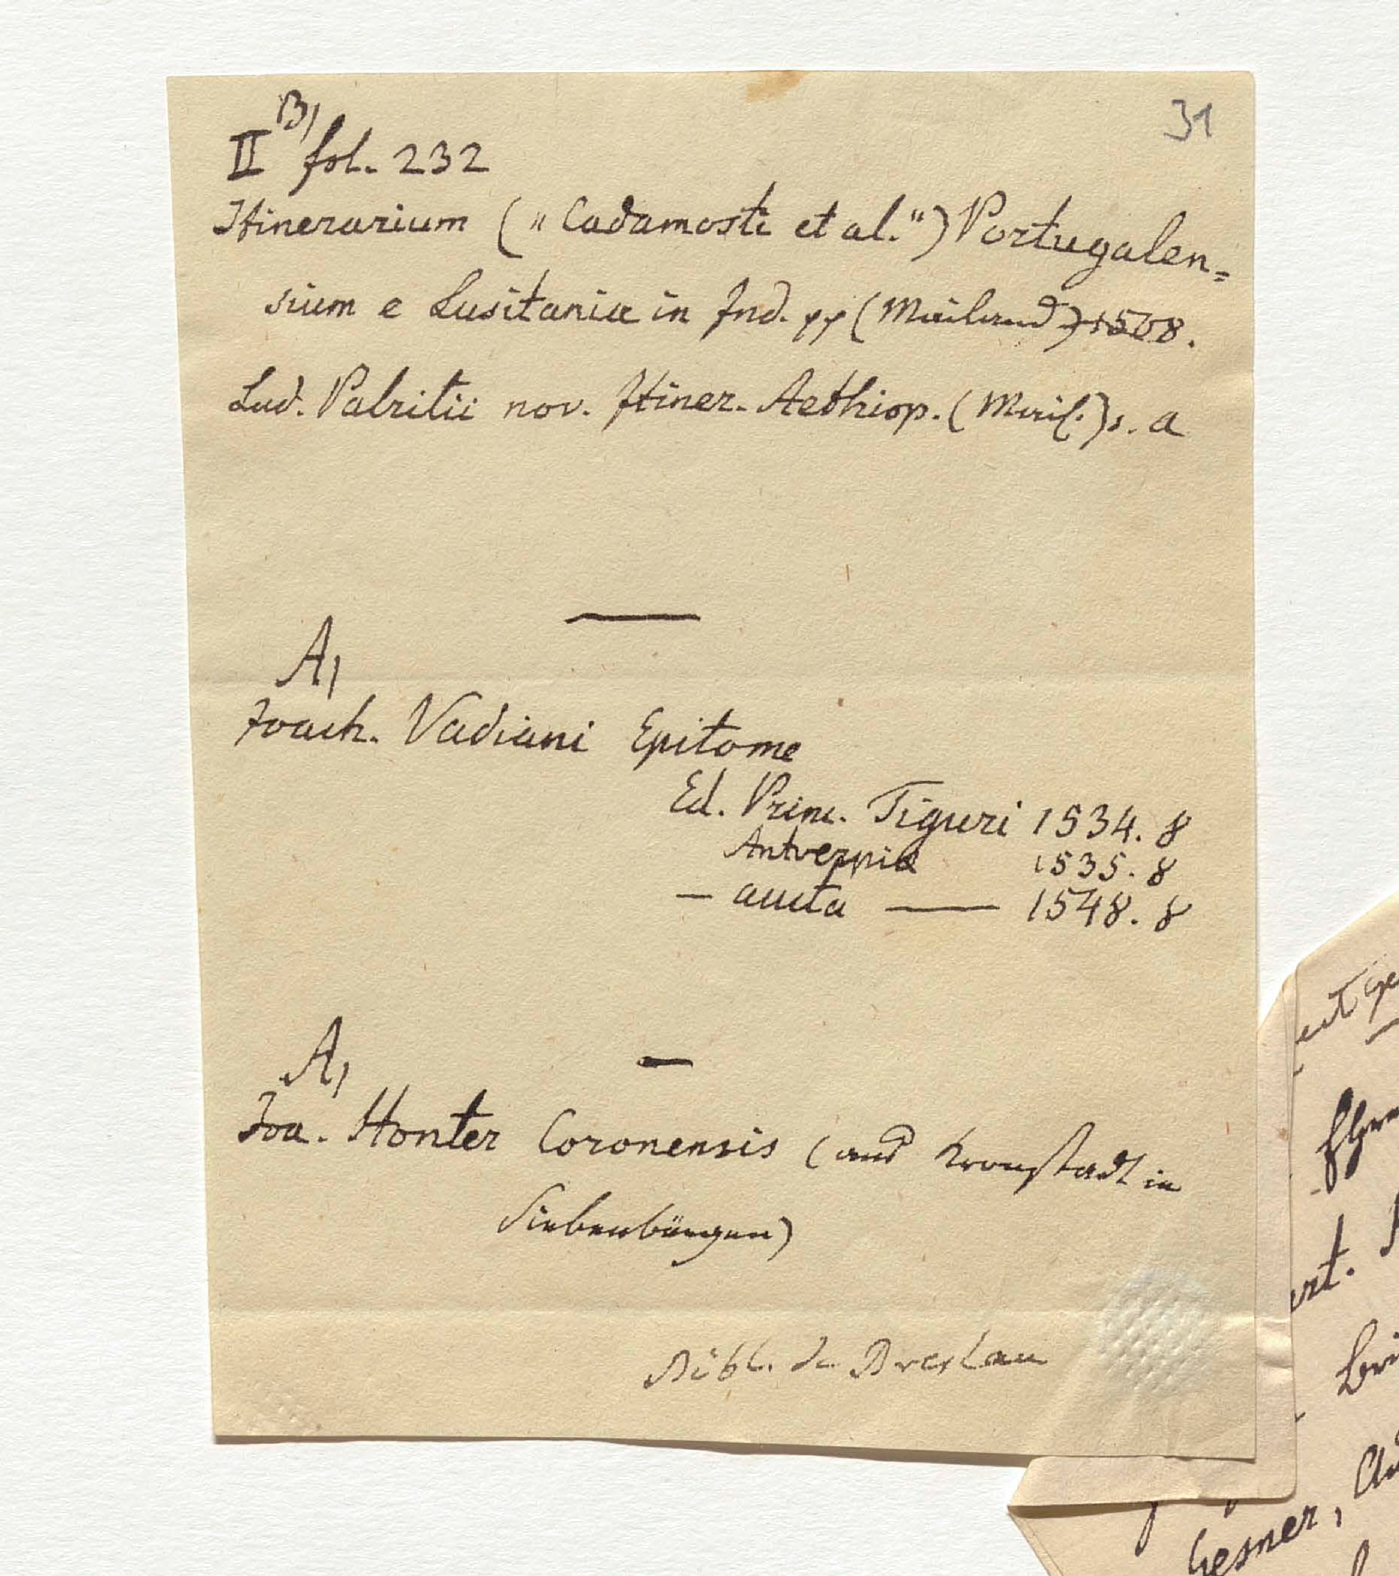 31
B)
II fol. 232
Itinerarium („Cadamosti et al.“) Portugalen=
sium e Lusitania in Ind. pp (Mailand) 1508.
Lud. Patritii nov. Itiner. Aethiop. (Mail.) s. a
A)
Joach. Vadiani Epitome
Ed. Princ. Tiguri 1534. 8
Antverpia 1535. 8
— aucta — 1548. 8
A)
Joa. Honter Coronensis (aus Kronstadt in
Siebenbürgen)
Bibl. de Breslau
Gesner,